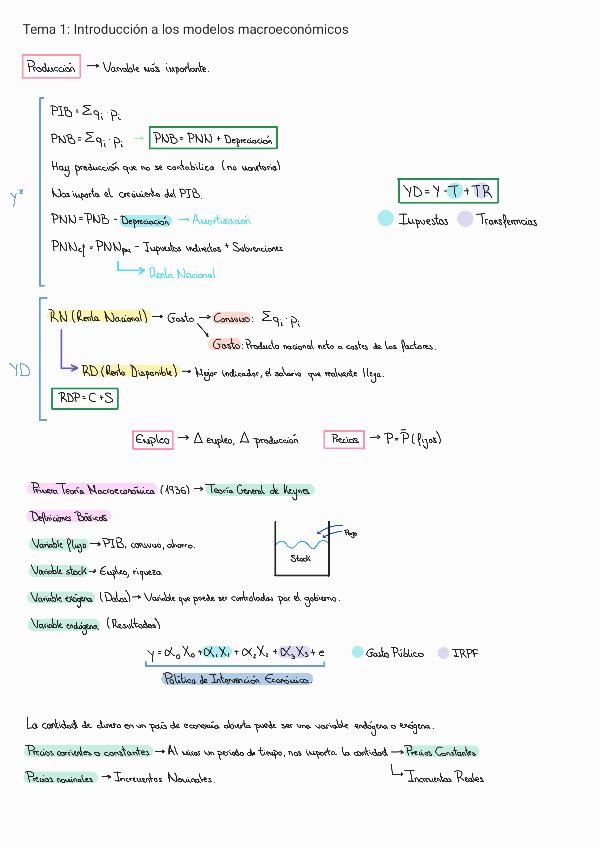 Tema 1: Introducción a los modelos macroeconómicos
Producción → Variable más importante.
PIB = Σqi · pi
PNB = Σqi · pi → PNB = PNN + Depreciación
Hay producción que no se contabiliza (no monitario)
Nos importa el crecimiento del PIB.
Y*
YD = Y - T + TR
PNN = PNB - Depreciación → Amortización
Impuestos Transferencias
PNNcf = PNNpm - Impuestos indirectos + Subvenciones
Renta Nacional
RN (Renta Nacional) → Gasto → Consumo: Σqi · pi
Gasto: Producto nacional neto a costes de los factores.
YD
RD (Renta Disponible) → Mejor indicador, el salario que realmente llega.
RDP = C + S
Empleo → Δ empleo, Δ producción Precios → P = P̄ (fijos)
Primera Teoría Macroeconómica (1936) → Teoría General de Keynes
Definiciones Básicas
Variable flujo → PIB, consumo, ahorro.
Flujo
Stock
Variable stock → Empleo, riqueza
Variable exógena (Datos) → Variable que puede ser controladas por el gobierno.
Variable endógena (Resultados)
y = α₀X₀ + α₁X₁ + α₂X₂ + α₃X₃ + e Gasto Público IRPF
Política de Intervención Económica.
La cantidad de dinero en un país de economía abierta puede ser una variable endógena o exógena.
Precios corrientes o constantes → Al mirar un periodo de tiempo, nos importa la cantidad → Precios Constantes
Precios nominales → Incrementos Nominales.
Incrementos Reales